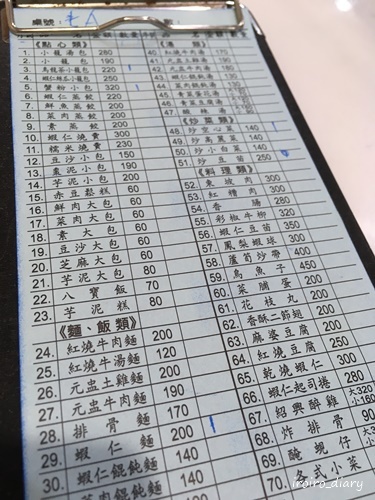 桌號：
《點心類》
1. 小籠湯包 280
2. 小籠包 190
3. 烏龍茶小籠包 220
4. 蝦仁絲瓜小籠包 250
5. 蟹粉小包 320
6. 蝦仁蒸餃 220
7. 鮮魚蒸餃 200
8. 菜肉蒸餃 200
9. 素蒸餃 200
10. 蝦仁燒賣 300
11. 糯米燒賣 230
12. 豆沙小包 150
13. 棗泥小包 190
14. 芋泥小包 200
15. 赤豆鬆糕 60
16. 鮮肉大包 60
17. 菜肉大包 60
18. 素大包 60
19. 豆沙大包 60
20. 芝麻大包 60
21. 芋泥大包 80
22. 八寶飯 70
23. 芋泥糕 80
《麵、飯類》
24. 紅燒牛肉麵 200
25. 紅燒牛湯麵 120
26. 元盅土雞麵 200
27. 元盅牛肉麵 190
28. 排骨麵 170
29. 蝦仁麵 200
30. 蝦仁餛飩麵 200
《湯類》
47. 酸辣湯
《炒菜類》
48. 炒空心菜 140
49. 炒高麗菜 140
50. 炒小白菜 140
51. 炒豆苗 250
《料理類》
52. 東坡肉 300
53. 紅糟肉 300
54. 香腸 280
55. 彩椒牛柳 320
56. 蝦仁豆苗 350
57. 鳳梨蝦球 300
58. 蘆筍炒帶子 400
59. 烏魚子 450
60. 菜脯蛋 200
61. 花枝丸 200
62. 香酥二節翅 200
63. 麻婆豆腐 200
64. 紅燒豆腐 250
65. 乾燒蝦仁 350
66. 蝦仁起司捲 280
67. 紹興醉雞 大320 小160
68. 炸排骨 90
69. 醃蜆仔
70. 各式小菜
iroiro_diary